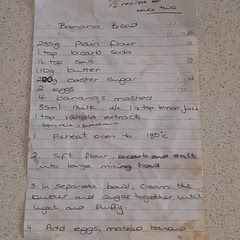 ½ recipe or
bake two
Banana Bread
285g plain flour
1 tsp bicarb soda
½ tsp salt
110g butter
200g caster sugar
2 eggs
4 bananas mashed
85ml milk 1½ tsp lemon juice
1 tsp vanilla extract
1. Preheat oven to 180°c
2. Sift flour, bicarb and salt
into large mixing bowl
3. In separate bowl, cream the
butter and sugar together until
light and fluffy.
4. Add eggs, mashed banana